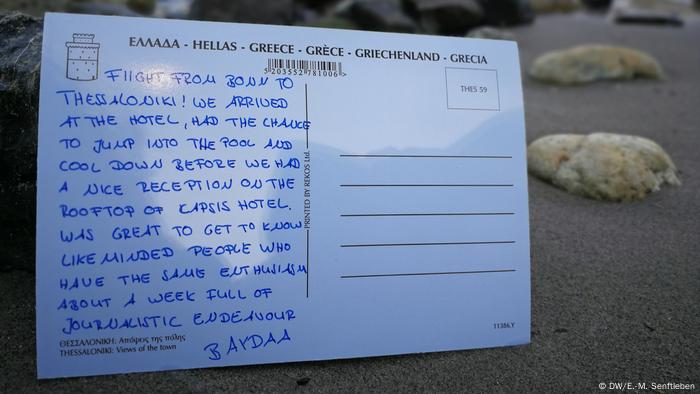 ΕΛΛΑΔΑ - HELLAS - GREECE - GRÈCE - GRIECHENLAND - GRECIA
5 203552 781006 >
THES 59
FLIGHT FROM BONN TO
THESSALONIKI! WE ARRIVED
AT THE HOTEL, HAD THE CHANCE
TO JUMP INTO THE POOL AND
COOL DOWN BEFORE WE HAD
A NICE RECEPTION ON THE
ROOFTOP OF KAPSIS HOTEL.
WAS GREAT TO GET TO KNOW
LIKEMINDED PEOPLE WHO
HAVE THE SAME ENTHUSIASM
ABOUT A WEEK FULL OF
JOURNALISTIC ENDEAVOUR
BAYDAA
PRINTED BY REKOS Ltd.
ΘΕΣΣΑΛΟΝΙΚΗ: Απόψεις της πόλης
THESSALONIKI: Views of the town
11386.Y
© DW/E.-M. Senftleben